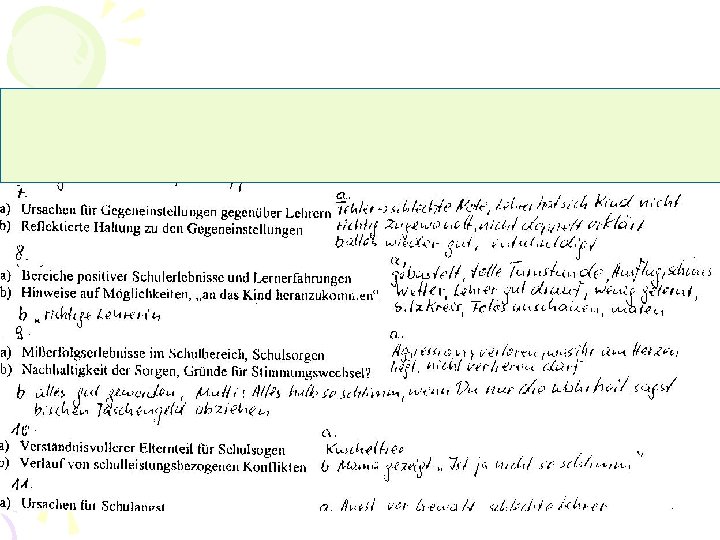 7. a.
a) Ursachen für Gegeneinstellungen gegenüber Lehrern Fehler schlechte Note, Lehrer hat sich Kind nicht
b) Reflektierte Haltung zu den Gegeneinstellungen richtig zugewandt, nicht doppelt erklärt
b alles wieder gut, entschuldigt
8. a,
a) Bereiche positiver Schulerlebnisse und Lernerfahrungen gebastelt, tolle Turnstunde, Ausflug, schönes
b) Hinweise auf Möglichkeiten, „an das Kind heranzukommen“ Wetter, Lehrer gut drauf, wenig gelernt,
b „richtige Lehrerin Sitzkreis, Fotos anschauen, malen
9. a.
a) Mißerfolgserlebnisse im Schulbereich, Schulsorgen Aggression, verloren, was ihr am Herzen
b) Nachhaltigkeit der Sorgen, Gründe für Stimmungswechsel? liegt, nicht verlieren darf
b alles gut geworden, Mutti: Alles halb so schlimm, wenn Du nur die Wahrheit sagst
bischen Taschengeld abziehen
10. a.
a) Verständnisvollerer Elternteil für Schulsogen Kuscheltier
b) Verlauf von schulleistungsbezogenen Konflikten b Mama gezeigt „Ist ja nicht so schlimm“
11.
a) Ursachen für Schulangst a. Angst vor Gewalt schlechte Lehrer